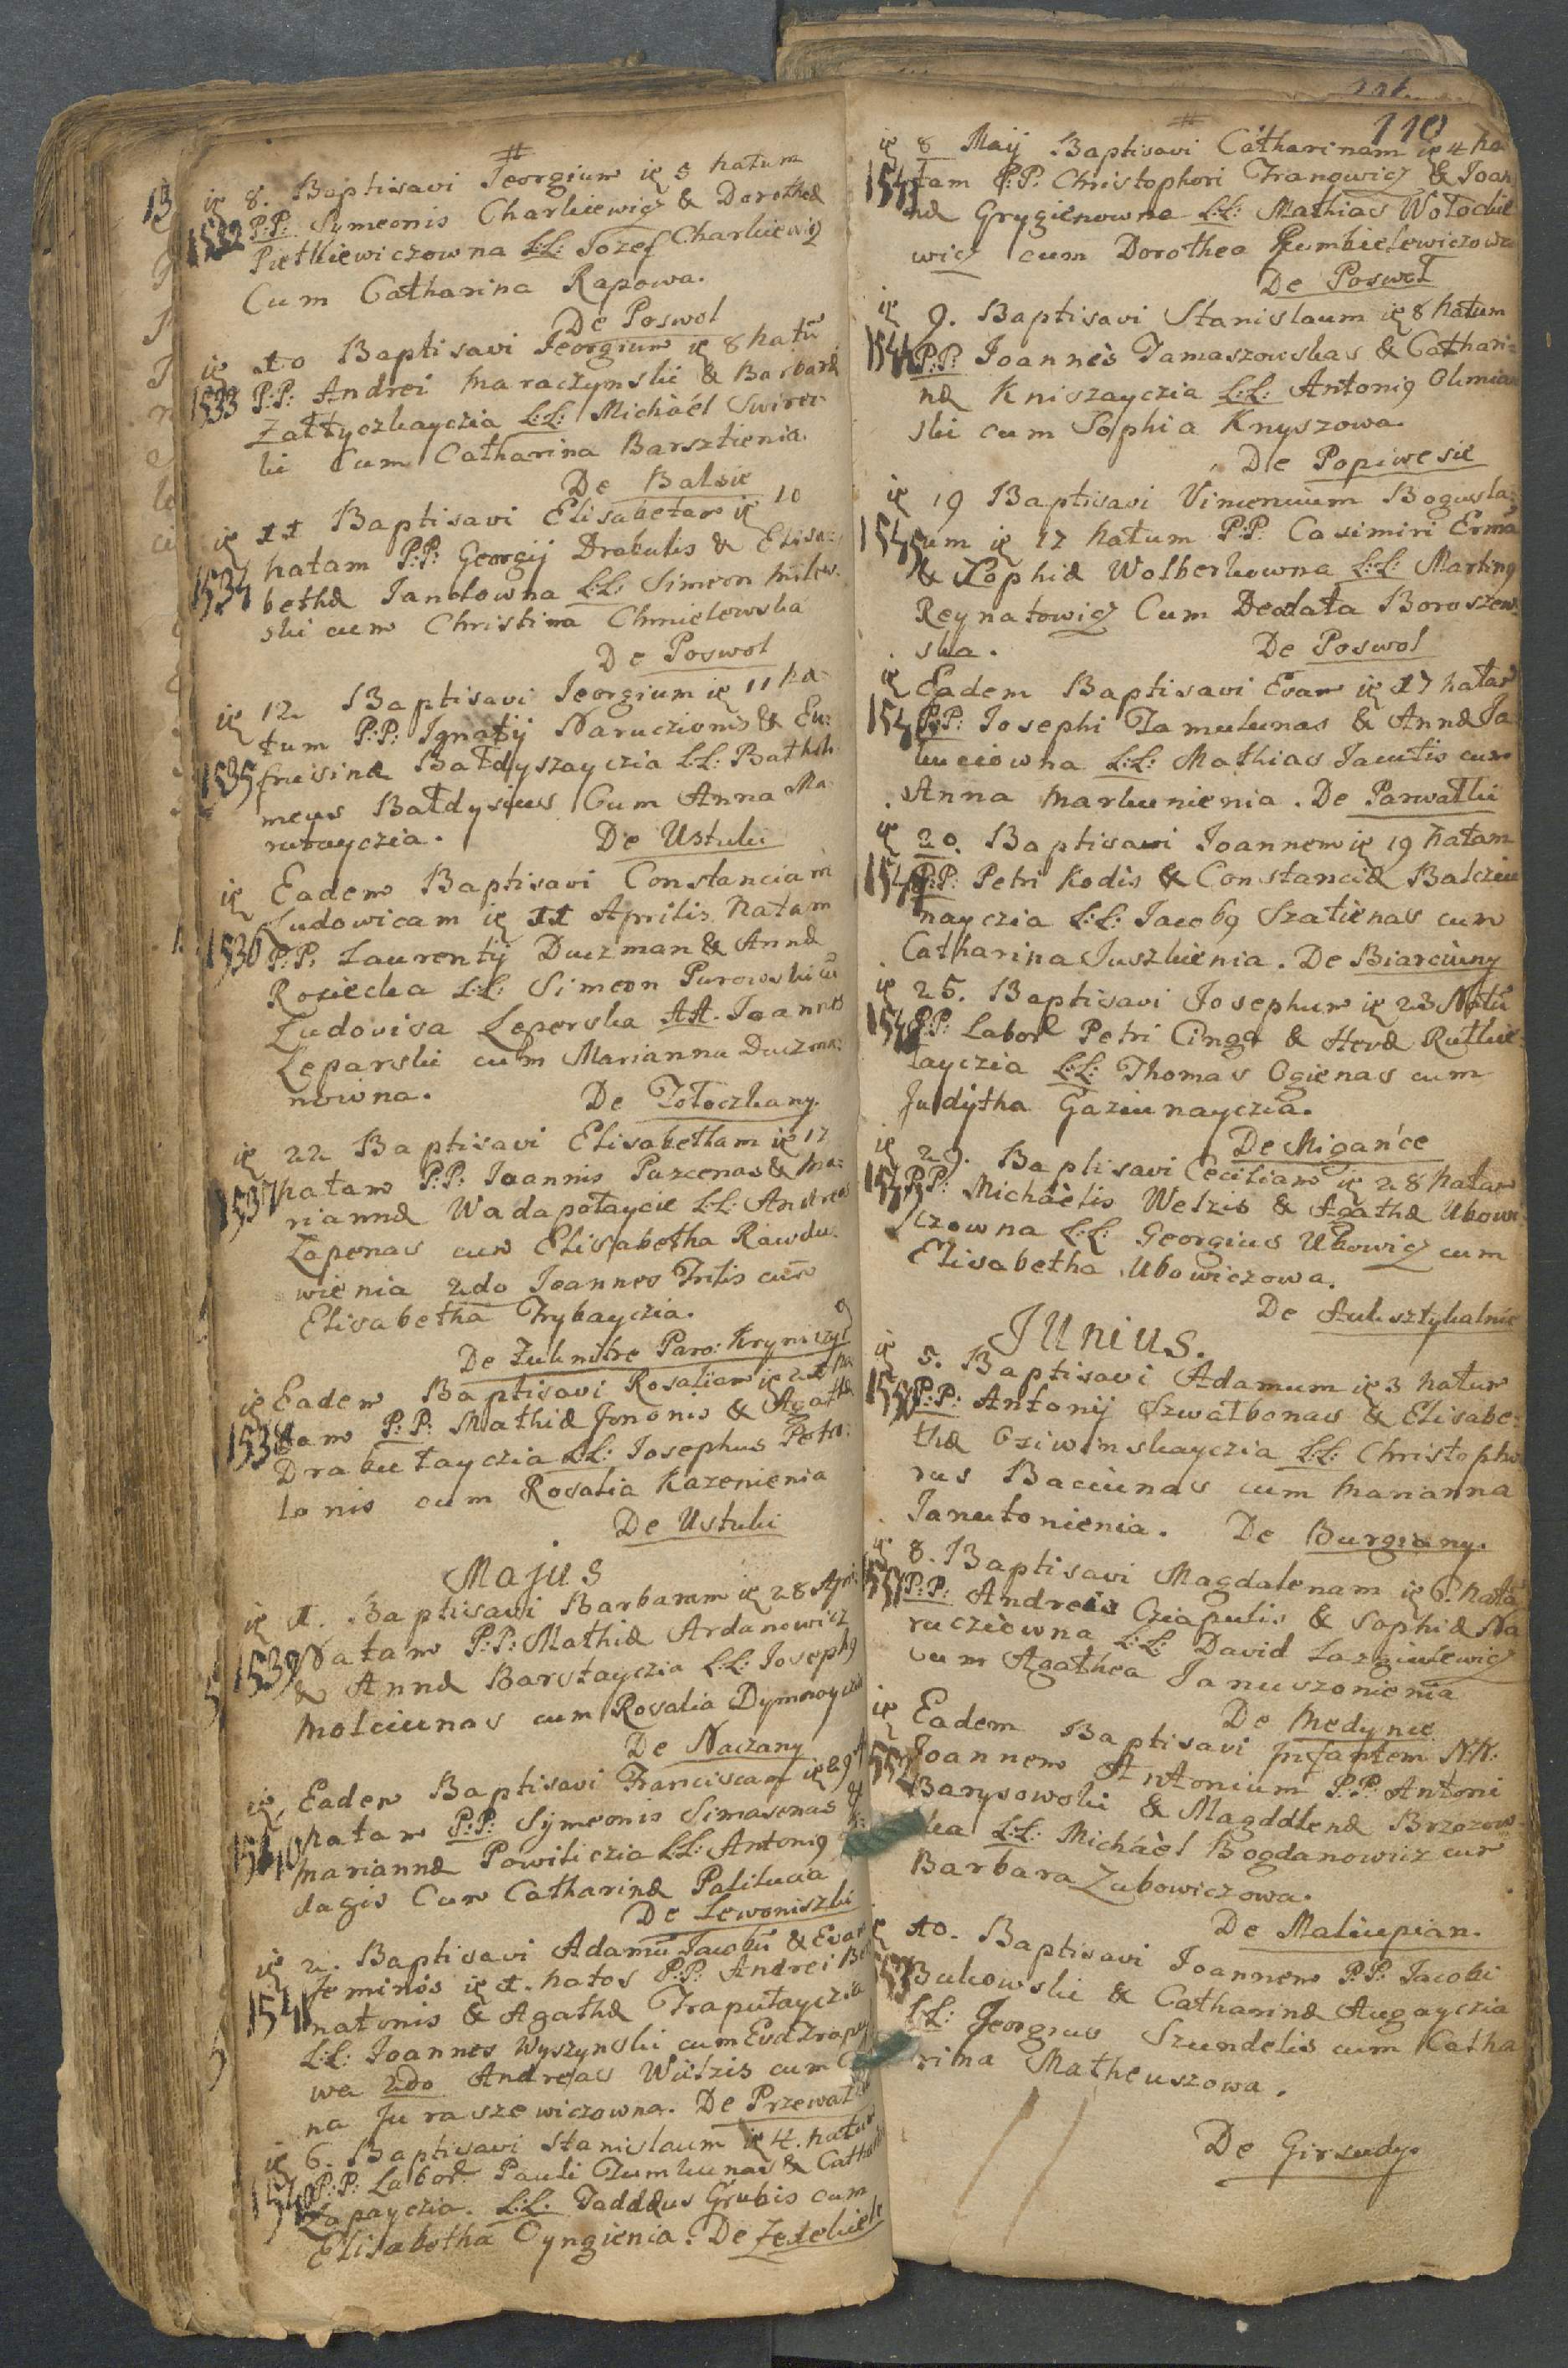 #
ię 8. Baptisavi Jeorgium ię 5 natum
1532 P:P: Symeonis Charkiewicz & Dorotheæ
Pietkiewiczowna L:L: Jozef Charkiewicz
Cum Catharina Rapowa.
De Poswol
ię 10 Baptisavi Jeorgium ię 8 natu
1533 P:P: Andrei Maraczynski & Barbaræ
Zattyczkayczia L:L: Michaél Swirers
ki Cum Catharina Barsztienia.
De Balsie
ię 11 Baptisavi Elisabetam ię 10
natam P:P: Georgij Drakulis & Elisa:
1534 bethæ Janolowna L:L: Simeon Milew
ski cum Christina Chmielewska
De Poswol
ię 12 Baptisavi Jeorgium ię 11 na
tum P:P: Ignatij Naruczionis & Eu:
1535 frusinæ Bałdyszayczia L:L: Barthol
meus Bałdysius Cum Anna Ma
rutayczia. De Ustuki
ię Eadem Baptisavi Constanciam
Ludowicam ię 11 Aprilis Natam
1536 P:P: Laurentij Duczman & Annæ
Rosiecka L:L: Simeon Purowski cu
Ludovisa Leperska AA. Joannes
Leparski cum Marianna Duczma:
nowna. De Zołoczkany.
ię 22 Baptisavi Elisabetham ię 17
1537 natam P:P: Joannis Puzcenas & Ma:
riannæ Wadapołaycie L:L: Andreas
Lapenas cum Elisabetha Rawdu
wienia 2do Joannes Tritis cum
Elisabetha Trybayczia.
De Zukmitre Paro: Kryniczyt
ię Eadem Baptisavi Rosaliam ię 21 na
1538 tam P:P: Mathiæ Jononis & Agathæ
Drakutayczia L:L: Josephus Petru
lonis cum Rosalia Kazenienia
De Ustuki
Majus
ię 1. Baptisavi Barbaram ię 28 Apri
1539 Natam P:P: Mathiæ Ardanowicz
& Annæ Barstayczia L:L: Joseph9
Molciunas cum Rosalia Dymowayczia
De Naczany
ię Eadem Baptisavi Franciscam ię 29
1540 natam P:P: Symeonis Simasenas &
Mariannæ Powiliczia L:L: Antoni9
dagis Cum Catharinæ Palilucia
De Lewoniszki
ię 2. Baptisavi Adamu Jacobu & Evam
Geminos ię 1. natos P:P: Andrei
1541 natonis & Agathæ Traputayczia
L:L: Joannes Wyszynski cum Eva Trapu
wa 2do Andreas Witzis cum
na Juraszewiczowna. De Przewał
ię 6. Baptisavi Stanislaum ię 4. natum
1542 P:P: Labor. Pauli Zumkunas & Catha
Lapayczia. L:L: Taddæus Grubis cum
Elisabetha Cyngienia. De
110
#
ię 8 Maij Baptisavi Catharinam ię 4 na
1543 tam P:P: Christophori Frangwicz & Joan
næ Grygienowna L:L: Mathias Wołockie
wicz cum Dorothea Gumbielewiczowna
De Poswol
ię 9. Baptisavi Stanislaum ię 8 natum
1544 P:P: Joannes Tamaszowskas & Cathari:
næ Kniszayczia L:L: Antoni9 Olmian
ski cum Sophia Knyszowa.
De Popiwesie
ię 19 Baptisavi Vincencium Bogusla:
1545 um ię 17 natum P:P: Casimiri Erma
& Zophiæ Wolberkowna L:L: Martin9
Reynatowicz Cum Deodata Boroszew
ska. De Poswol
ię Eadem Baptisavi Evam ię 17 natam
1546 P:P: Josephi Tamulunas & Annæ Ja
kuciowna L:L: Mathias Jacutis cum
Anna Markunienia. De Parwałki
ię 20. Baptisavi Joannem ię 19 natam
1547 P:P: Petri Kodis & Constanciæ Balcziu
nayczia L:L: Jacob9 Szatienas cum
Catharina Juszkienia. De Biarciuny
ię 25. Baptisavi Josephum ię 23 Natu
1548 P:P: Labor Petri Cinga & Hevæ Rutkie
tayczia L:L: Thomas Ogienas cum
Judytha Gaziunayczia.
De Migańce
ię 29. Baptisavi Ceciliam ię 28 natam
1549 P:P: Michaélis Welzis & Agathæ Ubowi
czowna L:L: Georgius Ubowicz cum
Elisabetha Ubowiczowa.
De Auksztykalnie
JUnius.
ię 5. Baptisavi Adamum ię 3 natum
1550 P:P: Antonij Szwatbonas & Elisabe:
thæ Oziwinskayczia L:L: Christopho
rus Baciunas cum Marianna
Janutonienia. De Burgiany.
ię 8. Baptisavi Magdalenam ię 6. nata
1551 P:P: Andreis Cziapulis & Sophiæ Na
rucziowna L:L: David Lazgiulewicz
cum Agathea Januszonienia
De Medynie
ię Eadem Baptisavi Infantem N:N:
1552 Joannem Antonium P:P: Antoni
Barysowski & Magdalenæ Brzozow
ka L:L: Michaél Bogdanowicz cum
Barbara Zubowiczowa.
De Maliupian.
ię 10. Baptisavi Joannem P:P: Jacobi
1553 Bukowski & Catharinæ Augayczia
L:L: Jeorgius Szundelis cum Catha
rina Matheuszowa.
De Girsudy.